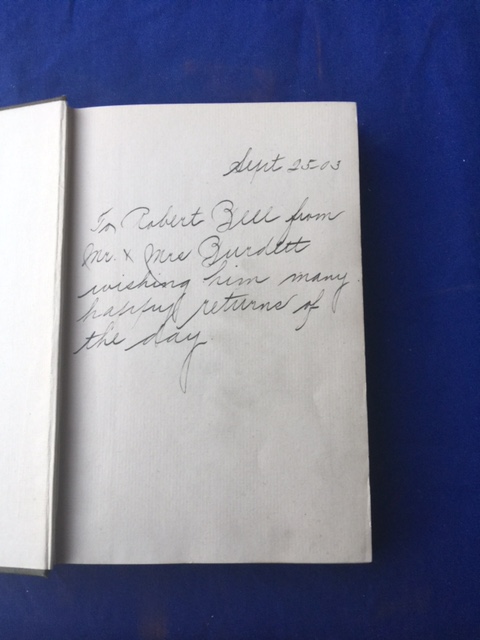 Sept 25-03
To Robert Bell from
Mr. & Mrs Burdett
wishing him many
happy returns of
the day